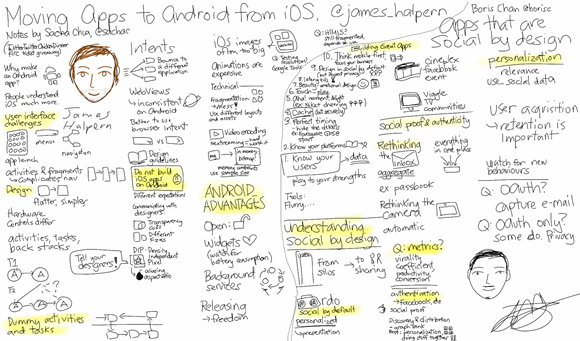 Moving Apps to Android from iOS, @james_halpern
Notes by Sacha Chua, @sachac
Why make
an Android
app?
People understand
iOS much more
User interface
challenges
James
Halpern
menus
app launch
navigation
activities & fragments
→ Complicates nav
Design
flatter, simpler
Hardware
Controls differ
activities, tasks,
back stacks
T1
A
A
T2
?
A
A
Tell your
designers!
Dummy activities
and tasks
Intents
Bounce to
a different
application
WebViews
inconsistent
on Android
Better to use
browser intent
Design
guidelines
Do not build
iOS apps
on android
Different expectations
Communicating with
designers:
Transparency
cuts
Different
sizes
DIP
Density
Independent
Pixel
aliasing
aspect ratio
iOS images
often too big
Animations are
expensive
Technical
Fragmentation
→ Mess!
Use different layouts
and assets
Video encoding
ANDROID
ADVANTAGES
Open:
Widgets
(watch for
battery consumption)
Background
services
Releasing
→ freedom
Q: HTML5?
Still fragmented,
Building Great Apps
10. Think mobile first,
9. Design in social by default
8.
7. Beauty: emotional design
6. Touch
5.
4. Cache
3. Perfect timing
- hide the details
2. Know your platforms
1. Know your
users
data
play to your strengths
Tools:
Flurry,...
Understanding
social by design
From
silos
→ to
sharing
rdo
social by default
personalized
→ presentation
Boris Chan @borisc
Apps that are
social by design
cineplex
facebook
exper.
Viggle
TV
communities
Social proof & authenticity
Rethinking
the
Inbox
aggregate
everything
in one
place
ex: passbook
Rethinking the
Camera
automatic
Q: metrics?
virality
coefficient,
productivity
conversion
authentication
→ Facebook, etc
social proof
Discovery & distribution
- graph rank
personalization
relevance
use social data
User aquisition
→ retention is
important
Watch for new
behaviours
Q: OAuth?
Capture e-mail
Q: OAuth only?
Some do. Privacy